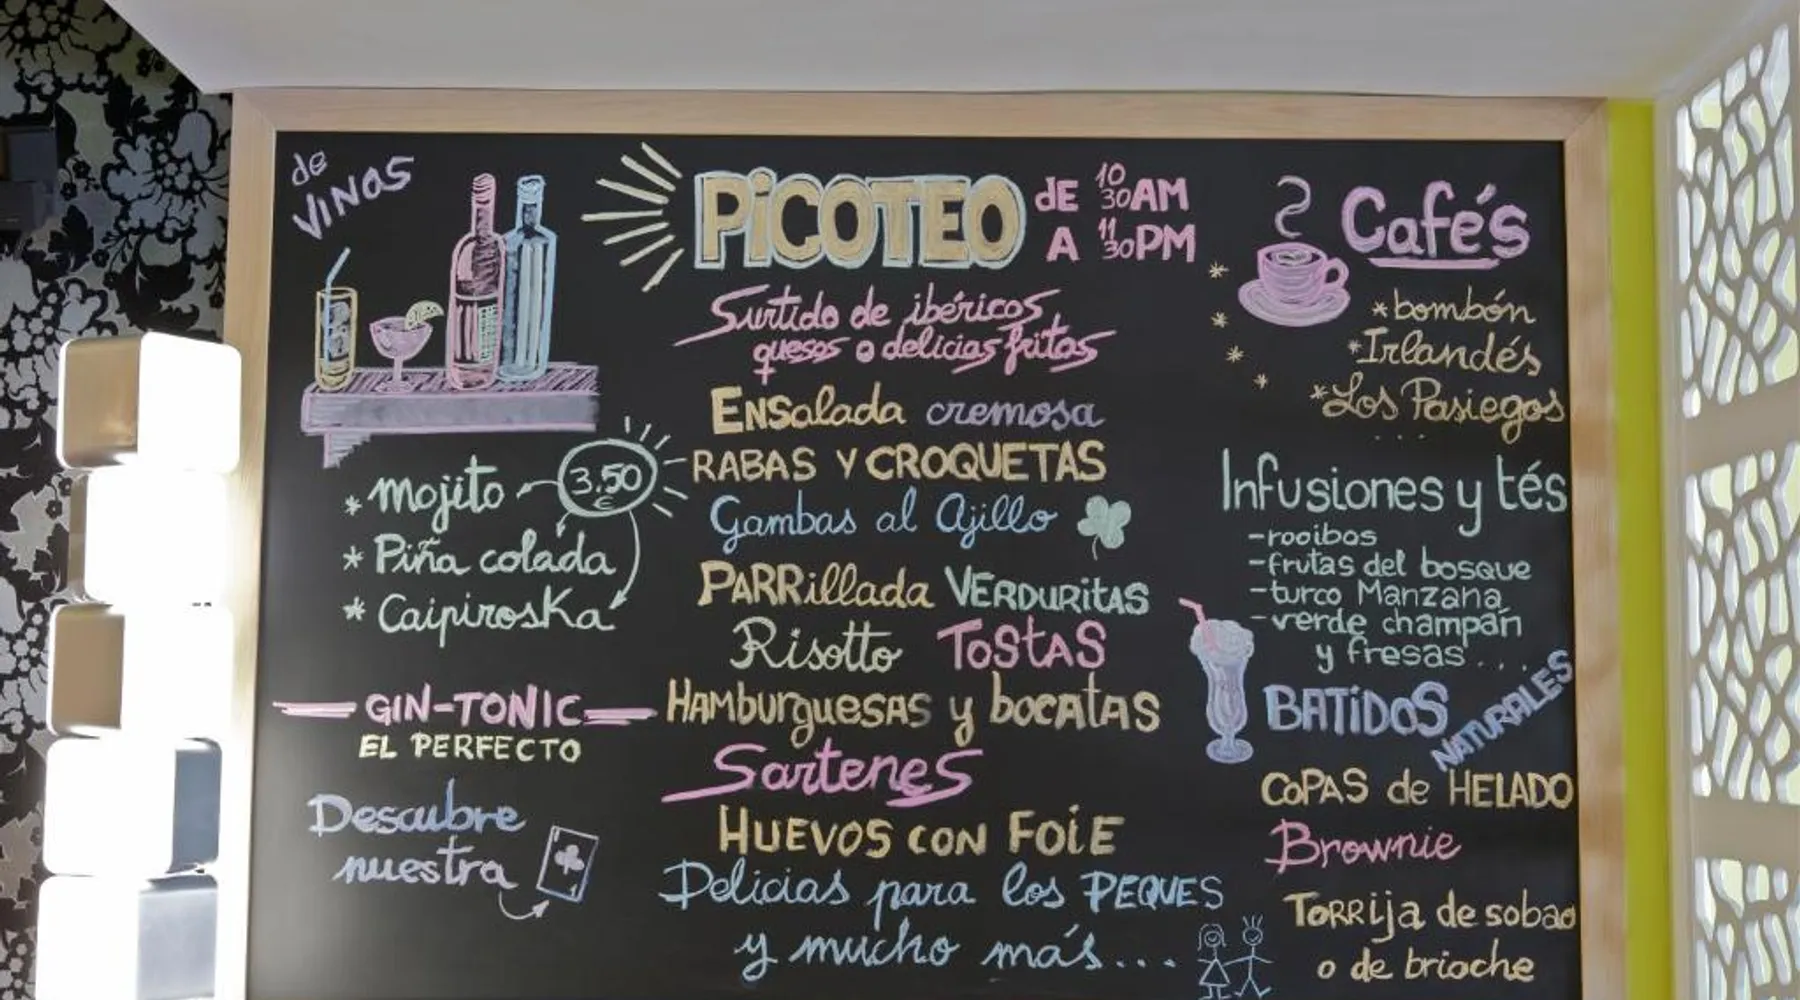 de
VINOS
* mojito
3.50
€
* Piña colada
* Caipiroska
GIN-TONIC
EL PERFECTO
Descubre
nuestra
PiCOTEO
DE 10 30 AM
A 11 30 PM
Surtido de ibéricos
quesos o delicias fritas
ENSalada cremosa
RABAS Y CROQUETAS
Gambas al Ajillo
PARRillada VERDURitAS
Risotto TOStAS
HAMburguesas y bocatas
Sartenes
HUEVOS CON FOiE
Delicias para los PEQUES
y mucho más...
Cafés
* bombón
* Irlandés
* Los Pasiegos
...
Infusiones y tés
- rooibos
- frutas del bosque
- turco Manzana
- verde champán
y fresas ....
BATiDOS
NATURALES
COPAS de HELADO
Brownie
TORRija de sobao
o de brioche